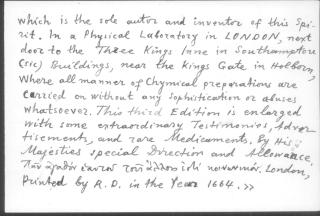 which is the sole autor and inventor of this Spi-
rit. In a Physical Laboratory in LONDON, next
door to the Three Kings Inne in Southamptore
(sic) Buildings, near the Kings Gate in Holborn,
Where all manner of Chymical preparations are
carried on without any Sophistication or abuses
whatsoever. This third Edition is enlarged
with some extraordinary Testimonies, Adver
tiscments, and rare Medicaments. By His
Majesties special Direction and Allowance.
Πᾶν ἀγαθὸν ἑαυτοῦ τοῦ London,
Printed by R.D. in the Year 1664. >>